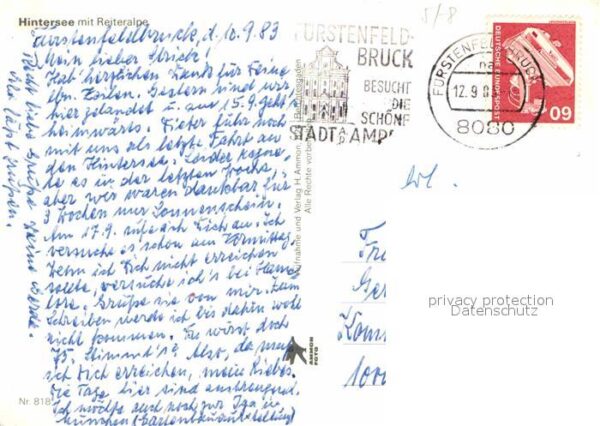 Hintersee mit Reiteralpe
Fürstenfeldbruck, d. 10.9.83
Mein lieber Ulrich!
Hab' herzlichen Dank für Deine
lbn. Zeilen. Gestern sind wir
hier gelandet u. am 15.9. geht's
heimwärts. Dieter fuhr noch
mit uns als letzte Fahrt an
den Hintersee. Leider regne-
te es in der letzten Woche,
aber wir waren dankbar für
3 Wochen nur Sonnenschein.
Am 17.9. rufe ich Dich an. Ich
versuche es schon am Vormittag.
Wenn ich Dich nicht erreichen
sollte, versuche ich's bei
Grüße sie von mir. Zum
Schreiben werde ich bis dahin wohl
nicht kommen. Du wirst doch
75. Stimmt's? Also, da muß
ich Dich erreichen, mein Lieber.
Die Tage hier sind anstrengend.
Ich möchte auch noch zur Iga in
München (Gartenbauausstellung)
Recht liebe Grüße Deine
läßt grüßen.
Nr. 818
Aufnahme und Verlag H. Ammon,
Alle Rechte vorbe
AMMON
FOTO
5/-8
FÜRSTENFELD-
BRUCK
BESUCHT
DIE
SCHÖNE
STADT A. AMPER
FÜRSTENFELDBRUCK
12.9.8
8080
DEUTSCHE BUNDESPOST
60
Fr
Ge
privacy protection
Datenschutz